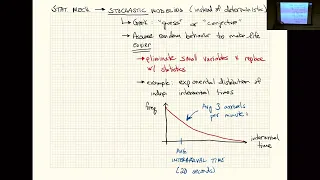 STAT MECH → STOCHASTIC MODELING (instead of deterministic)
↳ Greek "guess" or "conjecture"
↳ Assume random behavior to make life
easier
→ eliminate small variables & replace
w/ statistics
→ example: exponential distribution of
indep. interarrival times
freq
Avg 3 arrivals
per minute
interarrival
time
AVG
INTERARRIVAL TIME
(20 seconds)